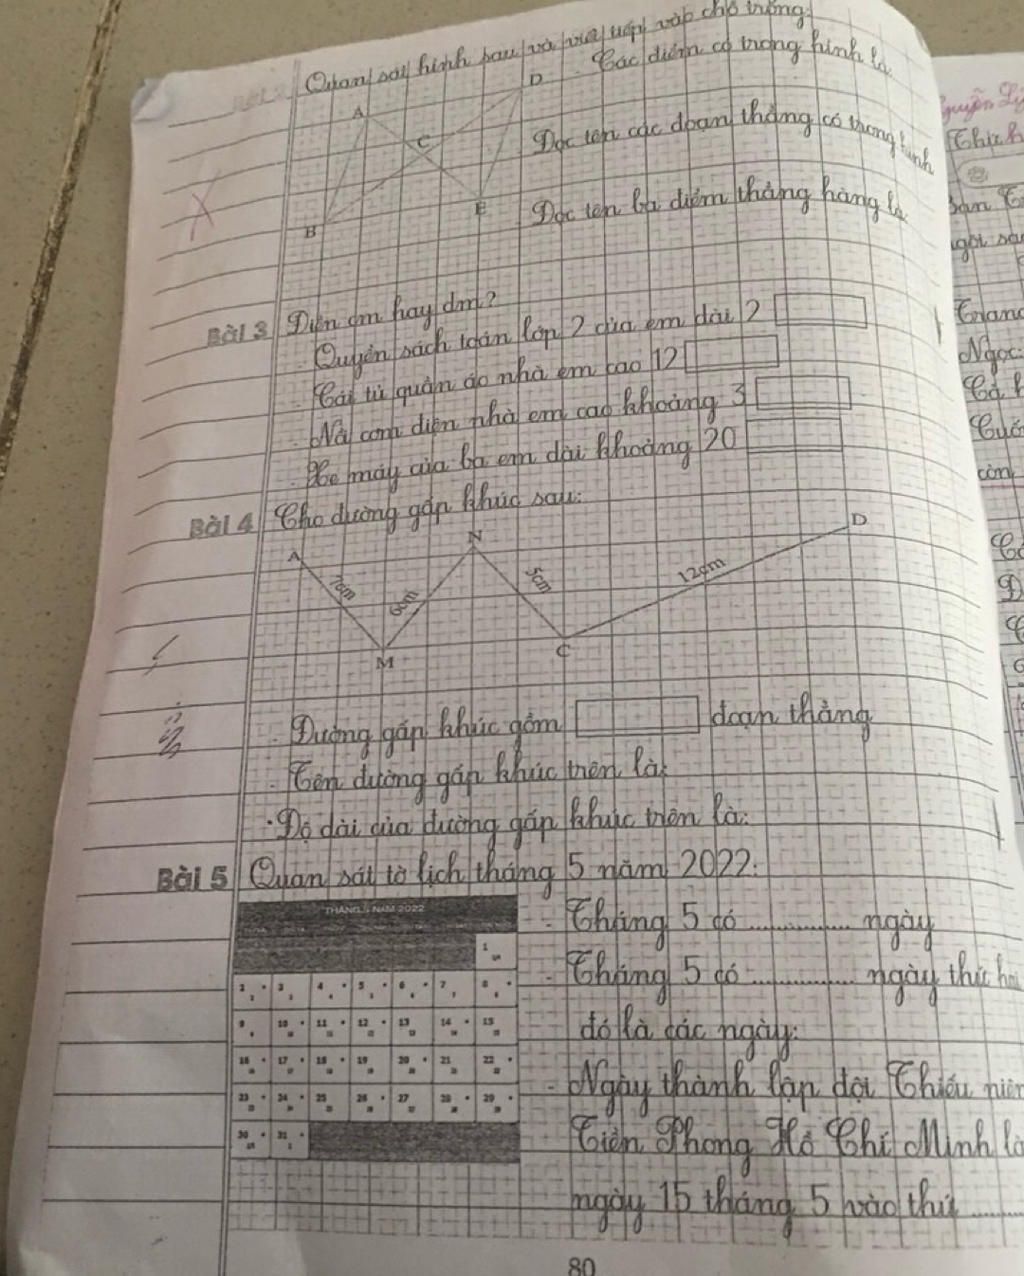 Quan sát hình sau và viết tiếp vào chỗ trống
A
D
Các điểm có trong hình là
C
Đọc tên các đoạn thẳng có trong hình
B
E
Đọc tên ba điểm thẳng hàng là
Bài 3 Điền cm hay dm?
. Quyển sách toán lớp 2 của em dài 2
. Cái tủ quần áo nhà em cao 12
. Nồi cơm điện nhà em cao khoảng 3
. Xe máy của ba em dài khoảng 20
Bài 4 Cho đường gấp khúc sau:
A
N
D
7cm
6cm
5cm
12cm
M
C
. Đường gấp khúc gồm đoạn thẳng
. Tên đường gấp khúc trên là:
. Độ dài của đường gấp khúc trên là:
Bài 5 Quan sát tờ lịch tháng 5 năm 2022:
THÁNG 5 NĂM 2022
1
2 3 4 5 6 7 8
9 10 11 12 13 14 15
16 17 18 19 20 21 22
23 24 25 26 27 28 29
30 31
- Tháng 5 có ............ ngày
- Tháng 5 có ............ ngày thứ hai
đó là các ngày:
- Ngày thành lập đội Thiếu niên
Tiền Phong Hồ Chí Minh là
ngày 15 tháng 5 vào thứ ........
80